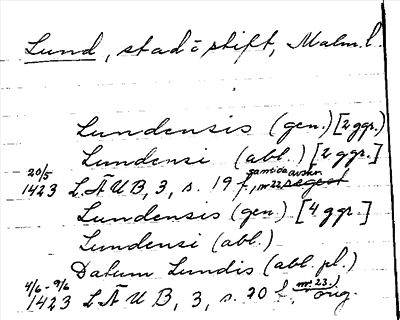 Lund, stad o stift, Malm. l.
Lundensis (gen.) [2 ggr.)
Lundensi (abl.) [2 ggr.]
20/5 samtida avskr.
1423 L Ä U B, 3, s. 19 f, nr 22 regest
Lundensis (gen.) [4 ggr.]
Lundensi (abl.)
Datum Lundis (abl. pl.)
4/6 - 9/6 nr 23.
1423 L Ä U B, 3, s. 20 f. orig.